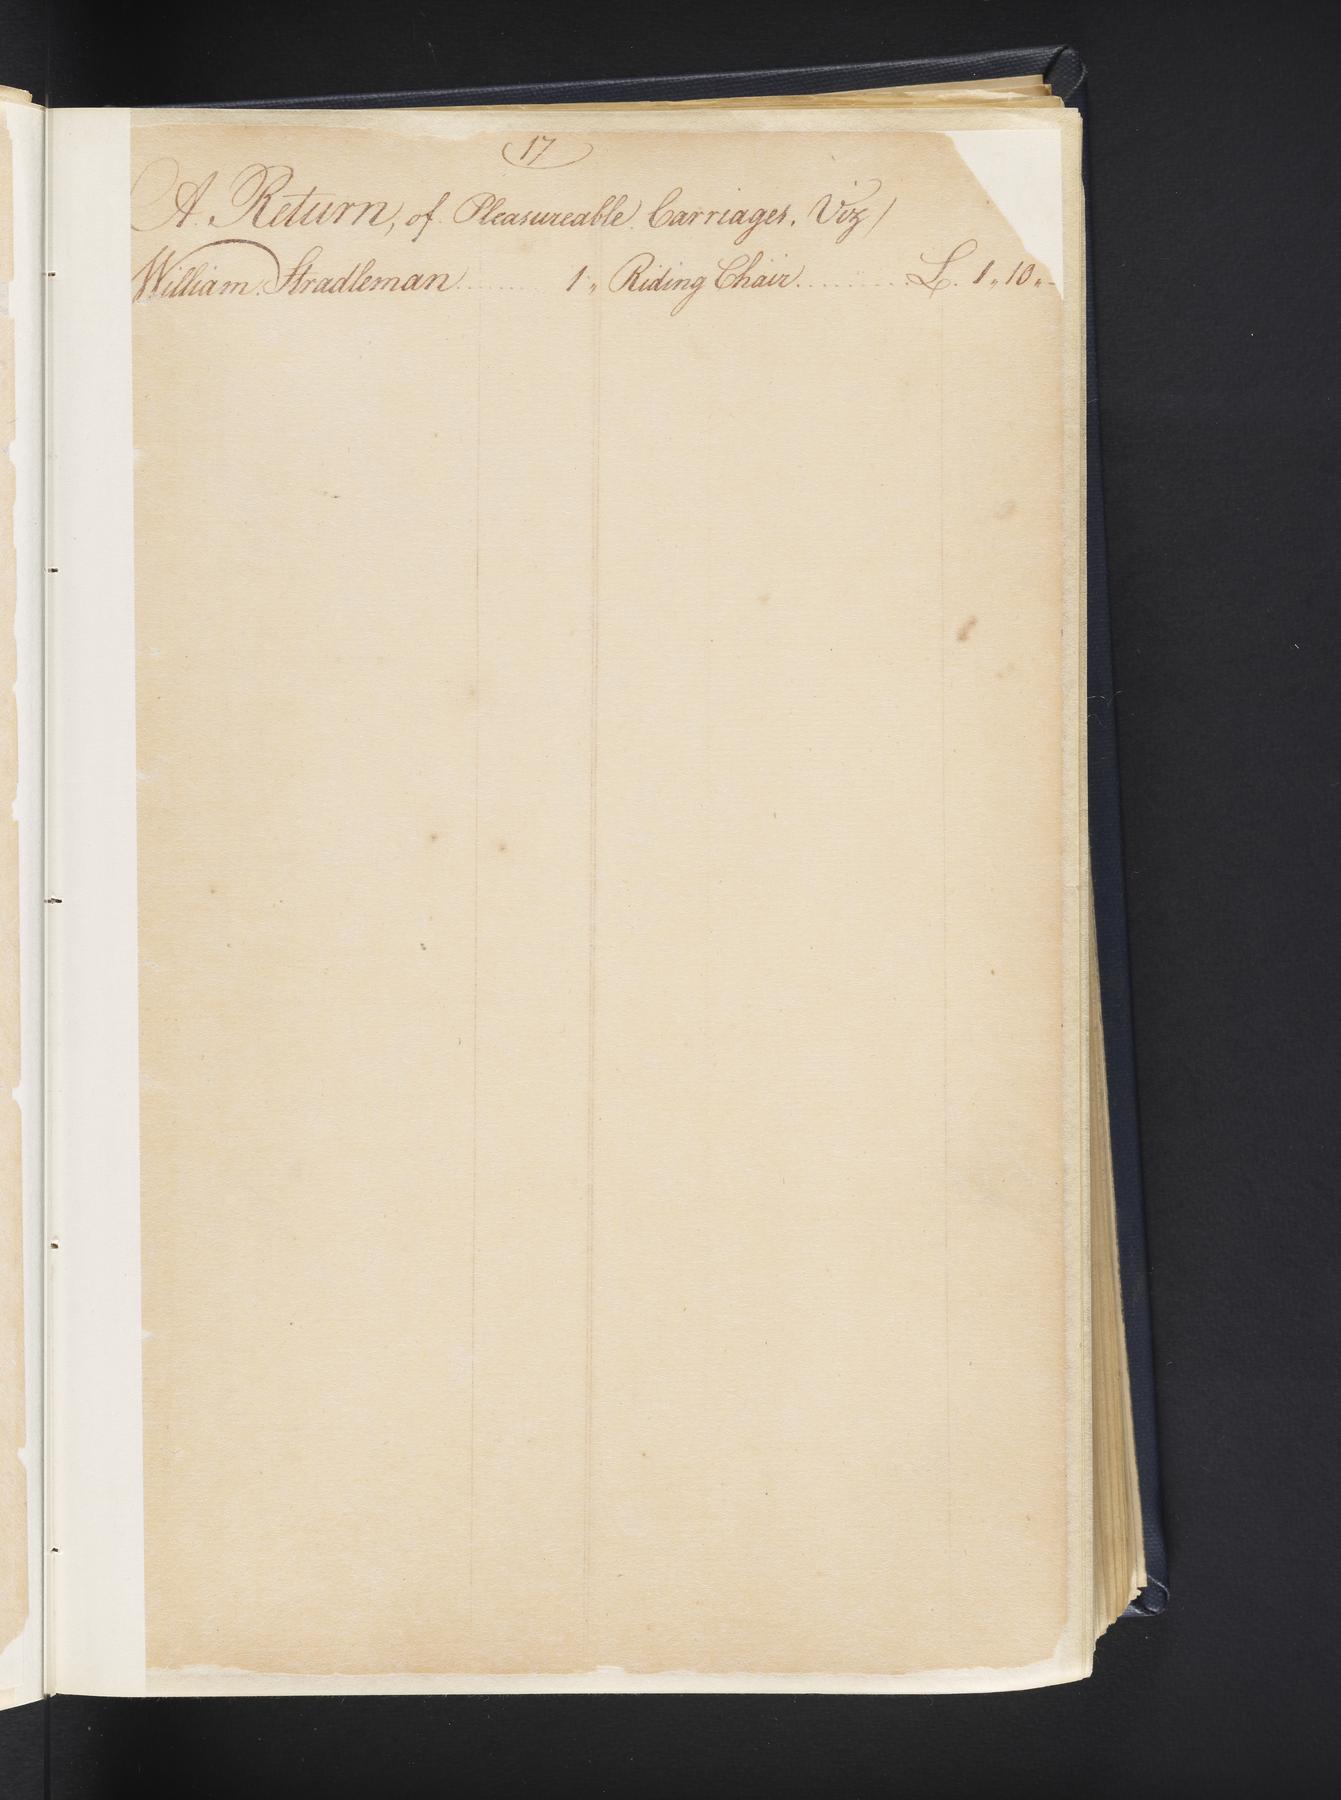 17
A Return, of Pleasureable Carriages. Viz /
William Stradleman ........ 1 „ Riding Chair .......... L. 1 „ 10 „ -